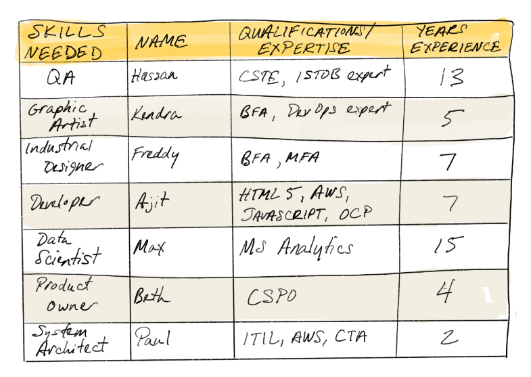 SKILLS NEEDED NAME QUALIFICATIONS/ EXPERTISE YEARS EXPERIENCE
QA Hassan CSTE, ISTQB expert 13
Graphic Artist Kendra BFA, DevOps expert 5
Industrial Designer Freddy BFA, MFA 7
Developer Ajit HTML 5, AWS, JAVASCRIPT, OCP 7
Data Scientist Max MS Analytics 15
Product Owner Beth CSPO 4
System Architect Paul ITIL, AWS, CTA 2